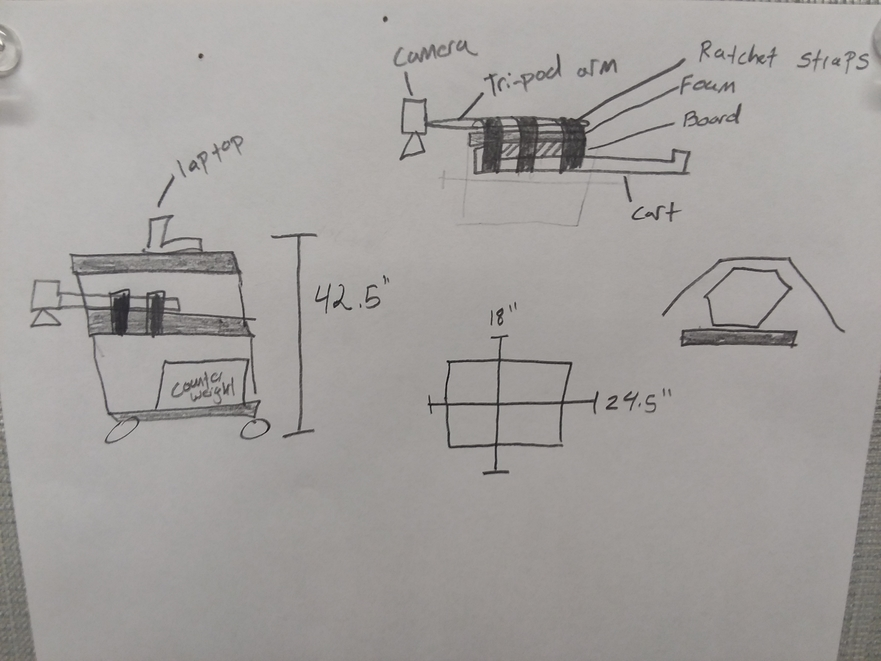 Camera
Tri-pod arm
Ratchet straps
Foam
Board
Cart
laptop
42.5"
Counter
weight
18"
24.5"